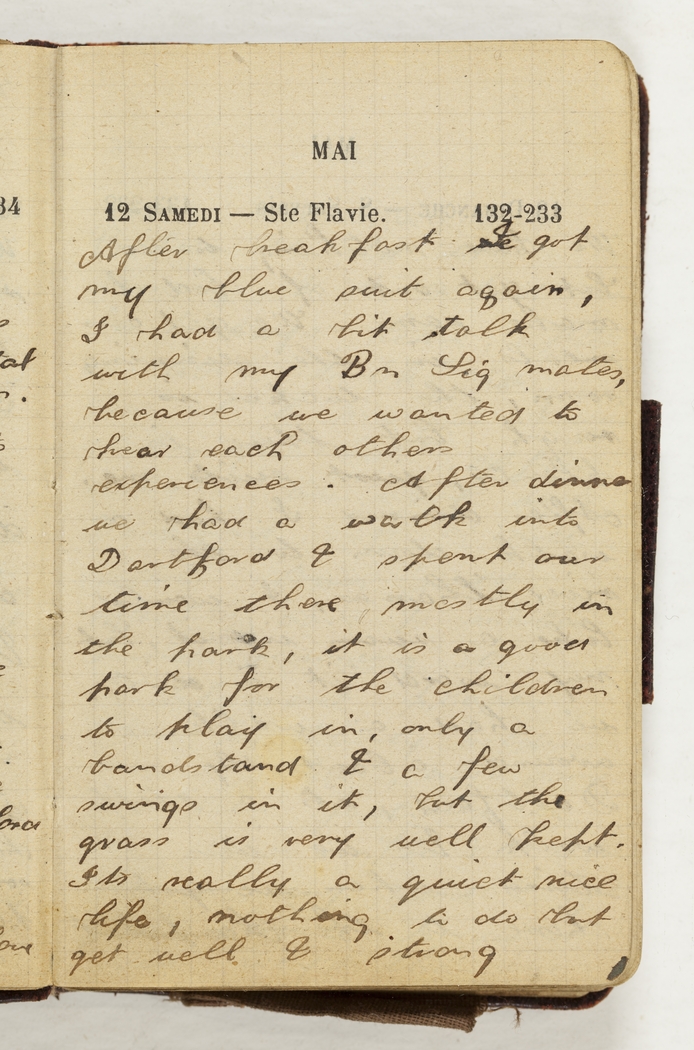 MAI
12 SAMEDI — Ste Flavie. 132-233
After breakfast I got
my blue suit again,
I had a bit talk
with my Bn Sig mates,
because we wanted to
hear each others
experiences. After dinne
we had a walk into
Dartford & spent our
time there, mostly in
the park, it is a good
park for the children
to play in, only a
bandstand & a few
swings in it, but the
grass is very well kept.
Its really a quiet nice
life, nothing to do but
get well & strong